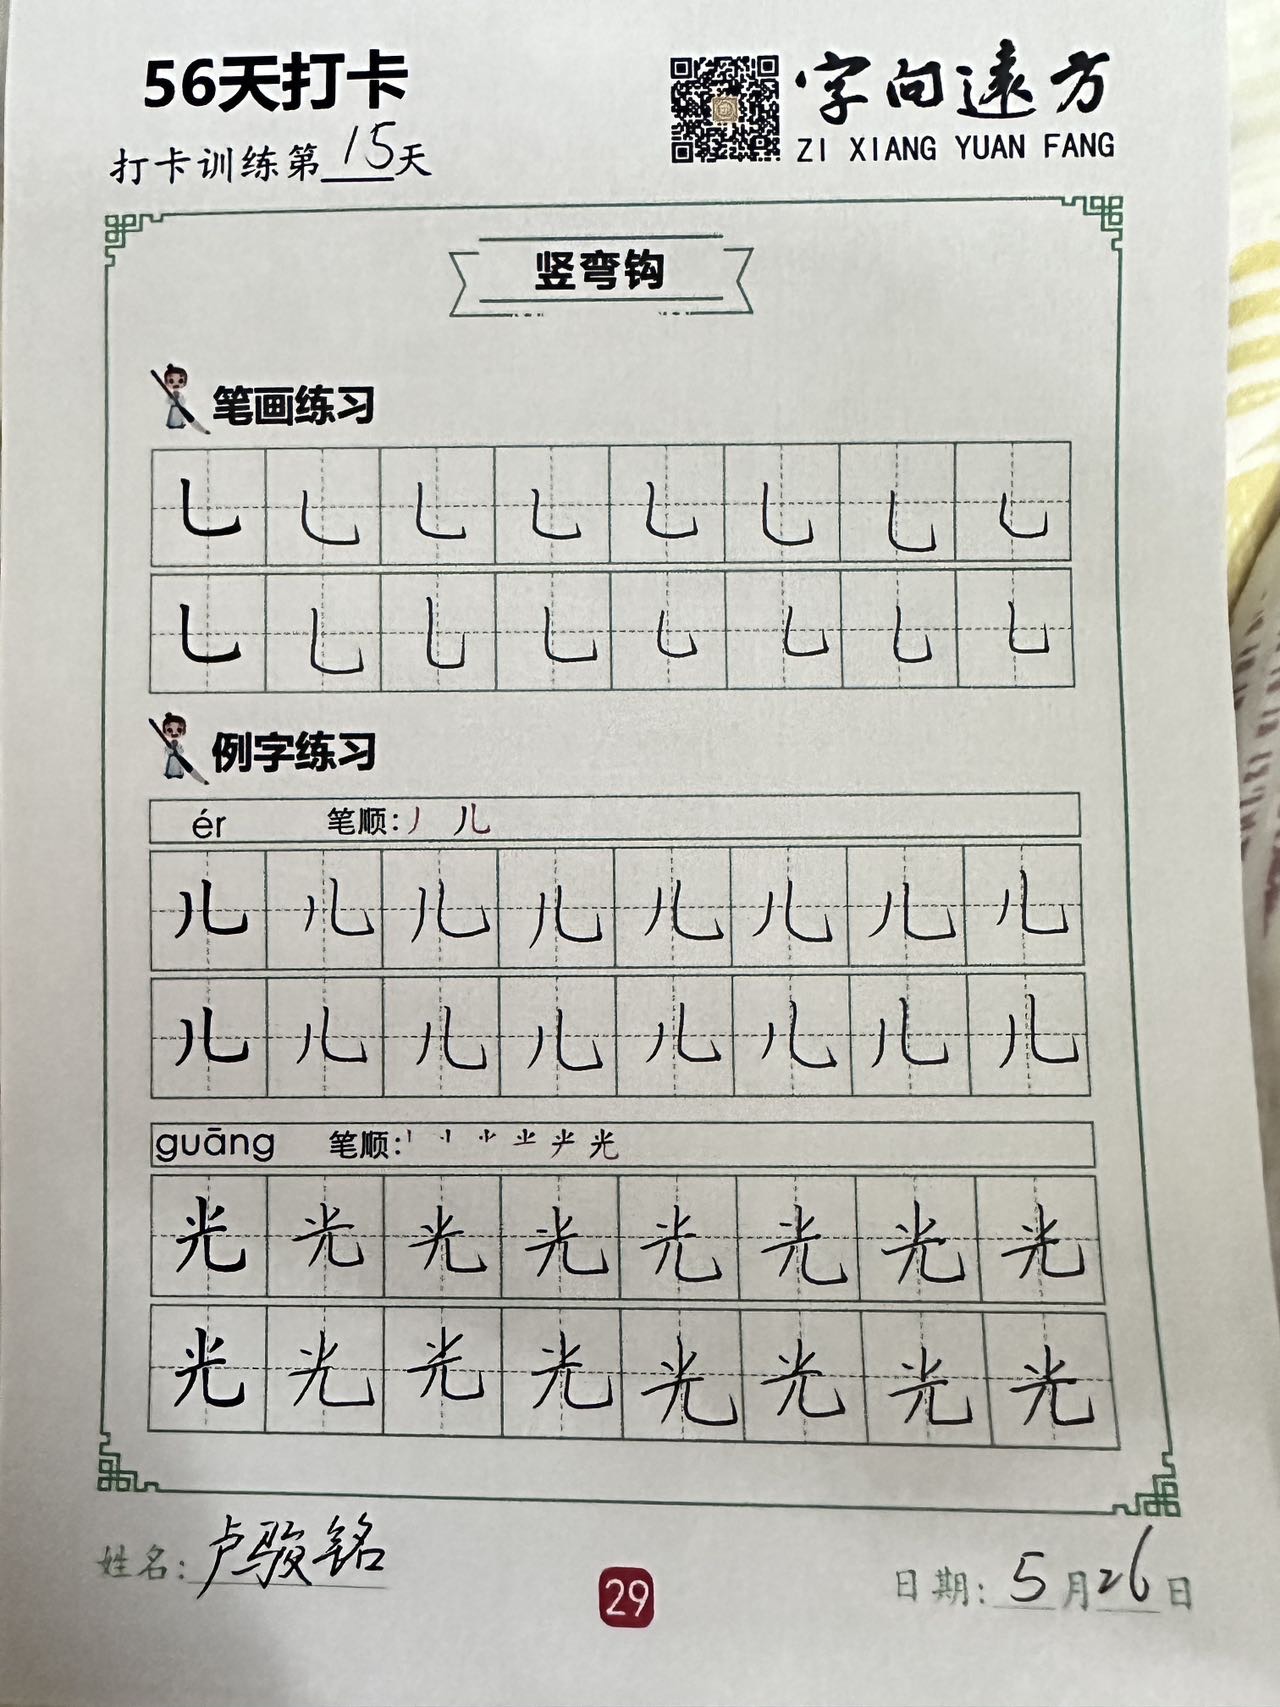 56天打卡
字向遠方
ZI XIANG YUAN FANG
打卡训练第15天
竖弯钩
笔画练习
乚 乚 乚 乚 乚 乚 乚 乚
乚 乚 乚 乚 乚 乚 乚 乚
例字练习
ér 笔顺: 丿 儿
儿 儿 儿 儿 儿 儿 儿 儿
儿 儿 儿 儿 儿 儿 儿 儿
guāng 笔顺: 光
光 光 光 光 光 光 光 光
光 光 光 光 光 光 光 光
姓名: 卢骏铭
29
日期: 5月26日